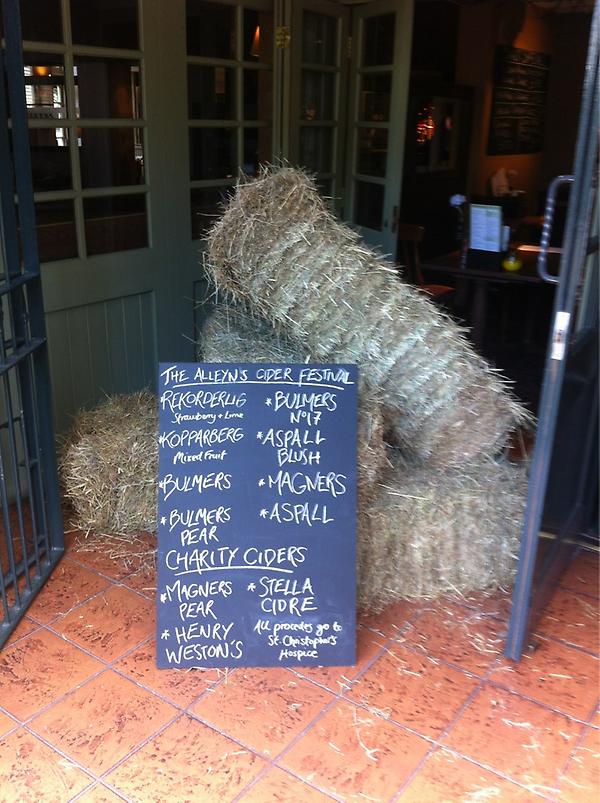 THE ALLEYN'S CIDER FESTIVAL
REKORDERLIG
Strawberry + Lime
*KOPPARBERG
Mixed Fruit
*BULMERS
*BULMERS
PEAR
*BULMERS
Nº17
*ASPALL
BLUSH
*MAGNERS
*ASPALL
CHARITY CIDERS
*MAGNERS
PEAR
*HENRY
WESTON'S
*STELLA
CIDRE
All procedes go to
St. Christopher's
Hospice